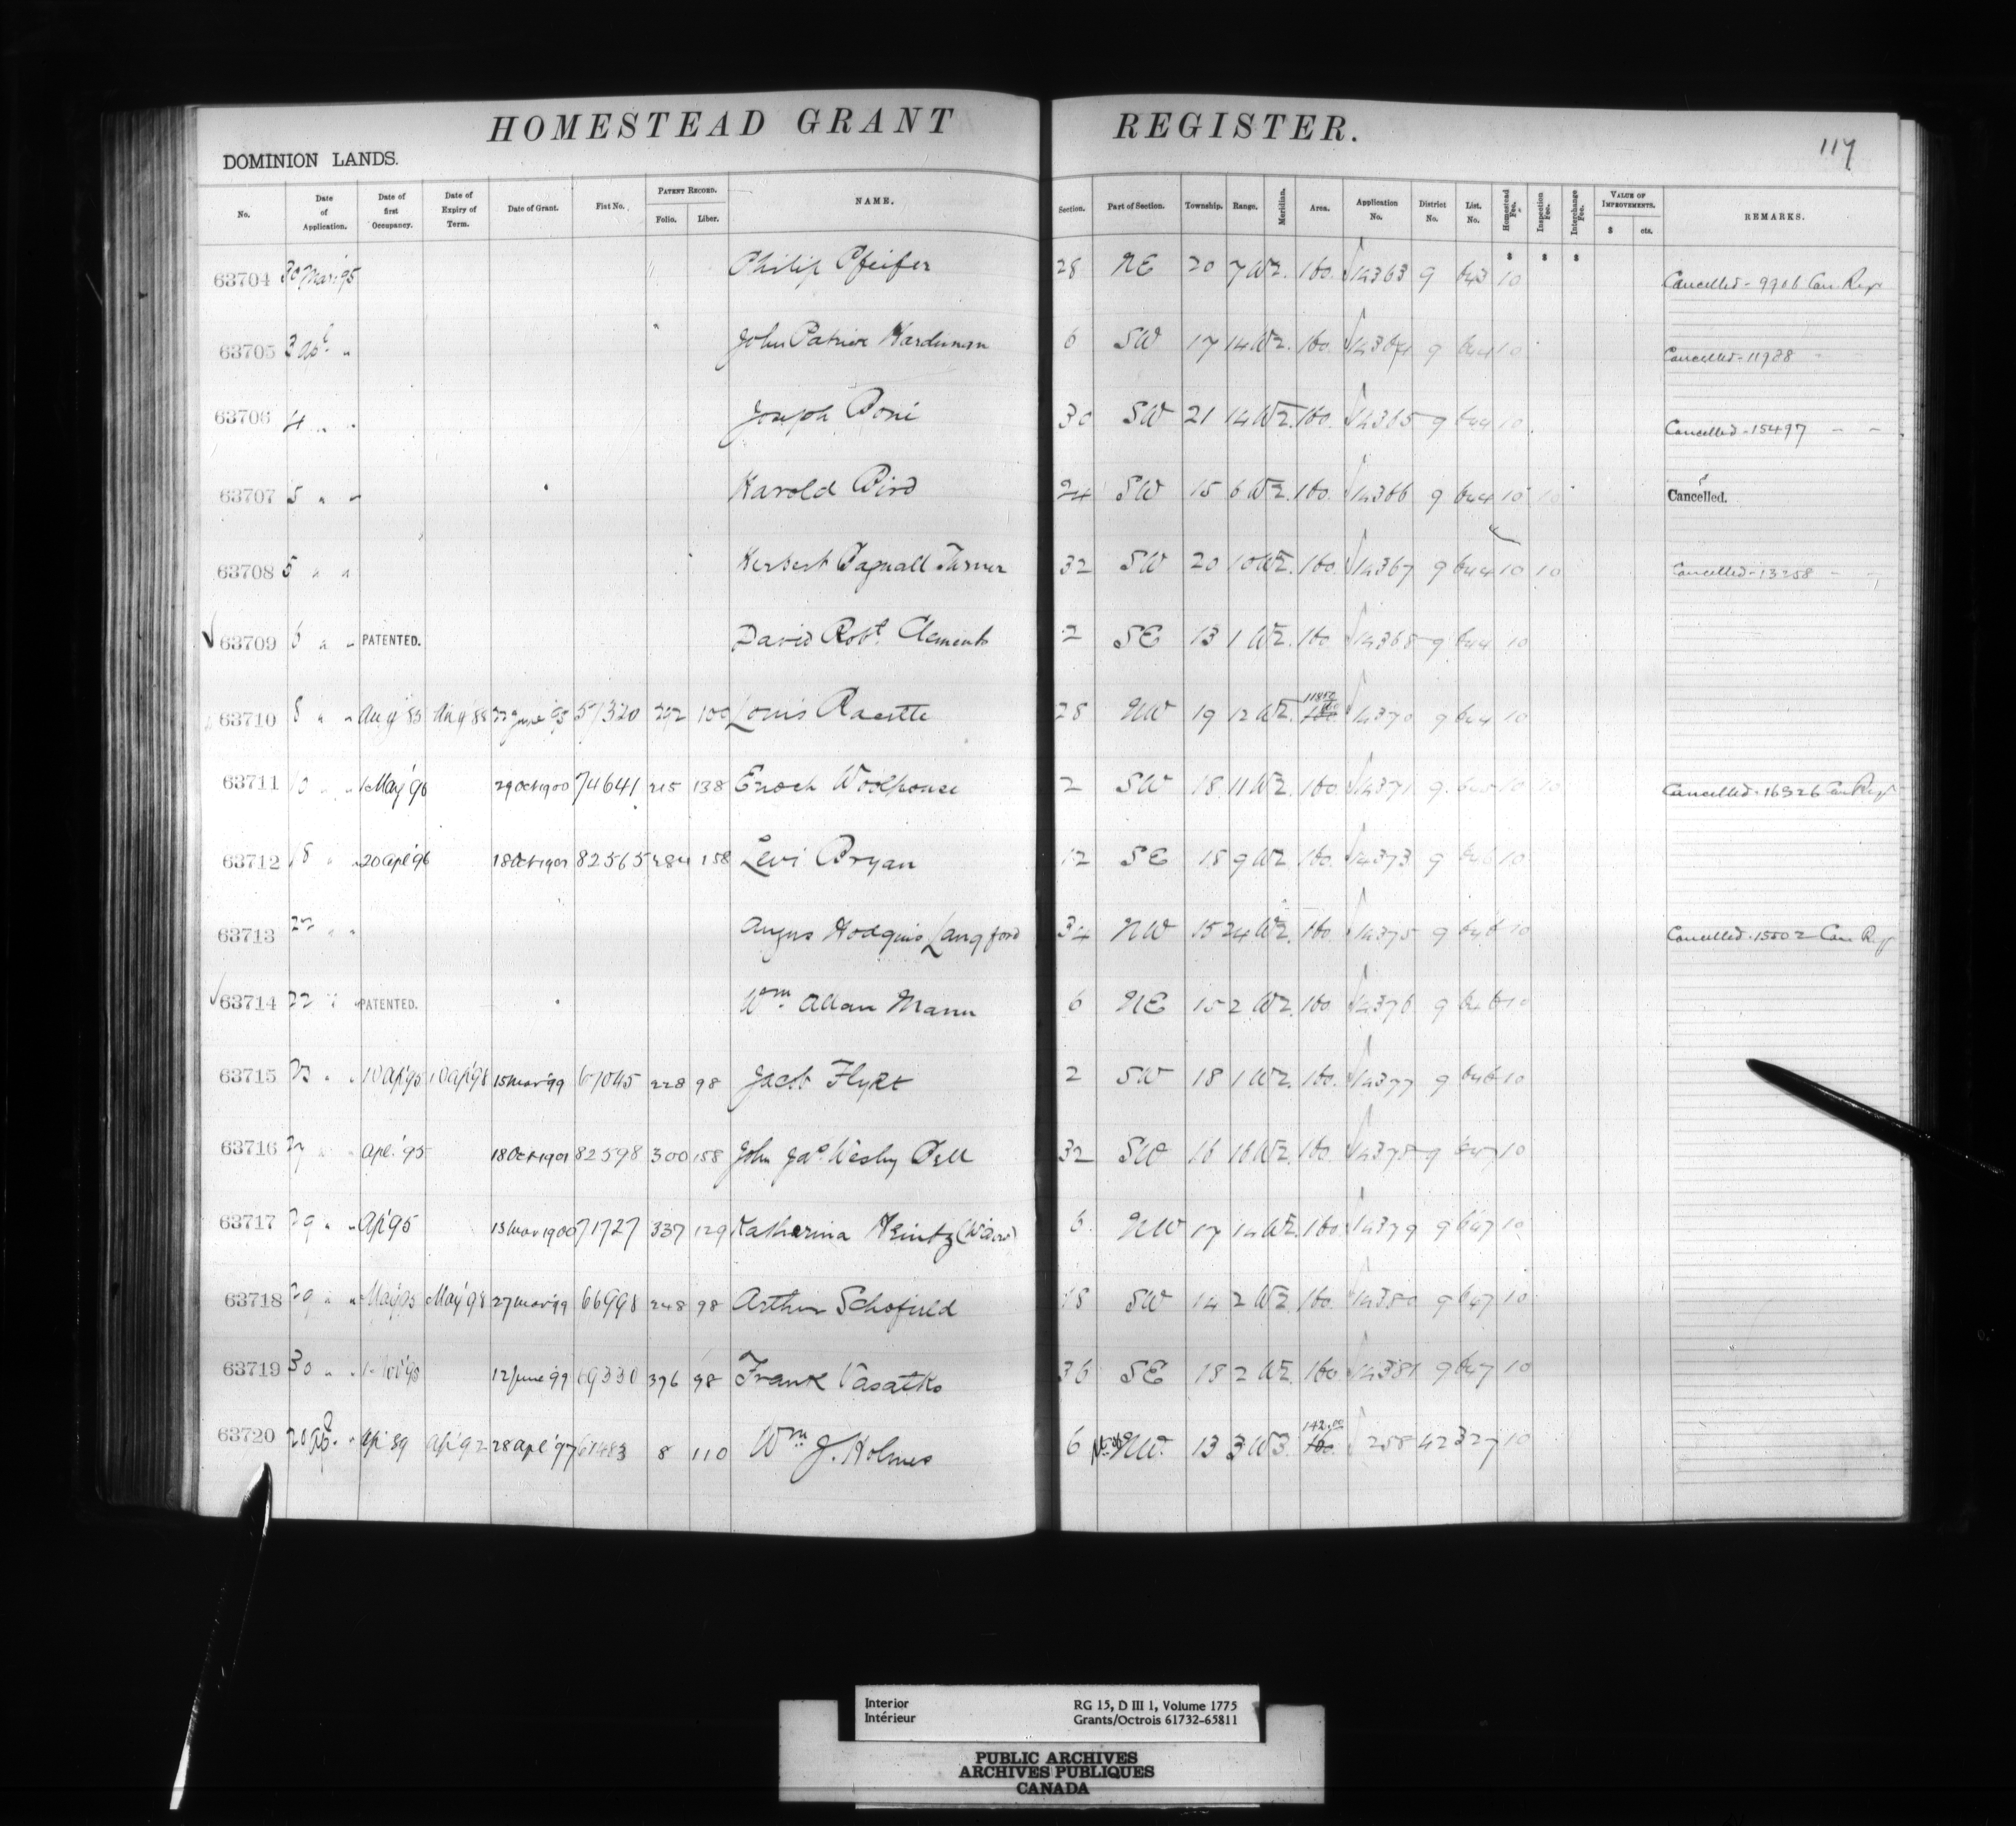 HOMESTEAD GRANT REGISTER.
117
DOMINION LANDS.
No. Date of Application. Date of first Occupancy. Date of Expiry of Term. Date of Grant. Fiat No. PATENT RECORD. Folio. Liber. NAME. Section. Part of Section. Township. Range. Meridian. Area. Application No. District No. List. No. Homestead Fee. Inspection Fee. Interchange Fee. VALUE OF IMPROVEMENTS. $ cts. REMARKS.
63704 30 Mar '95 Philip Pfeifer 28 NE 20 7 W2. 160. 14363 9 643 10 Cancelled - 9906 Can. Regr
63705 3 Apl " John Patrick Hardiman 6 SW 17 14 W2. 160. 14364 9 644 10 Cancelled - 11938 " "
63706 4 " " Joseph Boni 30 SW 21 14 W2. 160. 14365 9 644 10 Cancelled - 15497 " "
63707 5 " " Harold Bird 24 SW 15 6 W2. 160. 14366 9 644 10 10 Cancelled.
63708 5 " " Herbert Bagnall Turner 32 SW 20 10 W2. 160. 14367 9 644 10 10 Cancelled - 13258 " "
63709 6 " " PATENTED. David Robt. Clements 2 SE 13 1 W2. 160 14368 9 644 10
63710 8 " " Aug '85 Aug '88 22 June '95 57320 292 100 Louis Racette 28 NW 19 12 W2. 160 14370 9 644 10
63711 10 " " 1 May '96 29 Oct 1900 74641 215 138 Enoch Woolhouse 2 SW 18 11 W2. 160. 14371 9 645 10 10 Cancelled - 16326 Can Regr
63712 18 " " 20 Apl '96 18 Oct 1901 82565 284 158 Levi Bryan 12 SE 18 9 W2. 160. 14373 9 646 10
63713 22 " " Angus Hodgins Langford 34 NW 15 24 W2. 160. 14375 9 646 10 Cancelled - 15502 Can Regr
63714 22 " " PATENTED. Wm Allan Mann 6 NE 15 2 W2. 160. 14376 9 646 10
63715 23 " " 10 Ap '95 10 Ap '98 15 Mar '99 67045 228 98 Jacob Flykt 2 SW 18 1 W2. 160. 14377 9 646 10
63716 27 " " Apl. '95 18 Oct 1901 82598 300 158 John Jas. Wesley Bell 32 SW 16 16 W2. 160. 14378 9 647 10
63717 29 " " Ap '95 13 Mar 1900 71727 337 129 Katharina Heintz (Widow) 6. NW 17 14 W2. 160 14379 9 647 10
63718 29 " " May '95 May '98 27 Mar '99 66998 248 98 Arthur Schofield 18 SW 14 2 W2 160. 14380 9 647 10
63719 30 " " 1 Nov '95 12 June '99 69330 376 98 Frank Vasatko 36 SE 18 2 W2 160 14381 9 647 10
63720 20 Ap '89 Ap '92 28 Apl '97 61483 8 110 Wm J. Holmes 6 NW. 13 3 W3. 142.00 160 258 42 327 10
Interior RG 15, D III 1, Volume 1775
Intérieur Grants/Octrois 61732-65811
PUBLIC ARCHIVES
ARCHIVES PUBLIQUES
CANADA